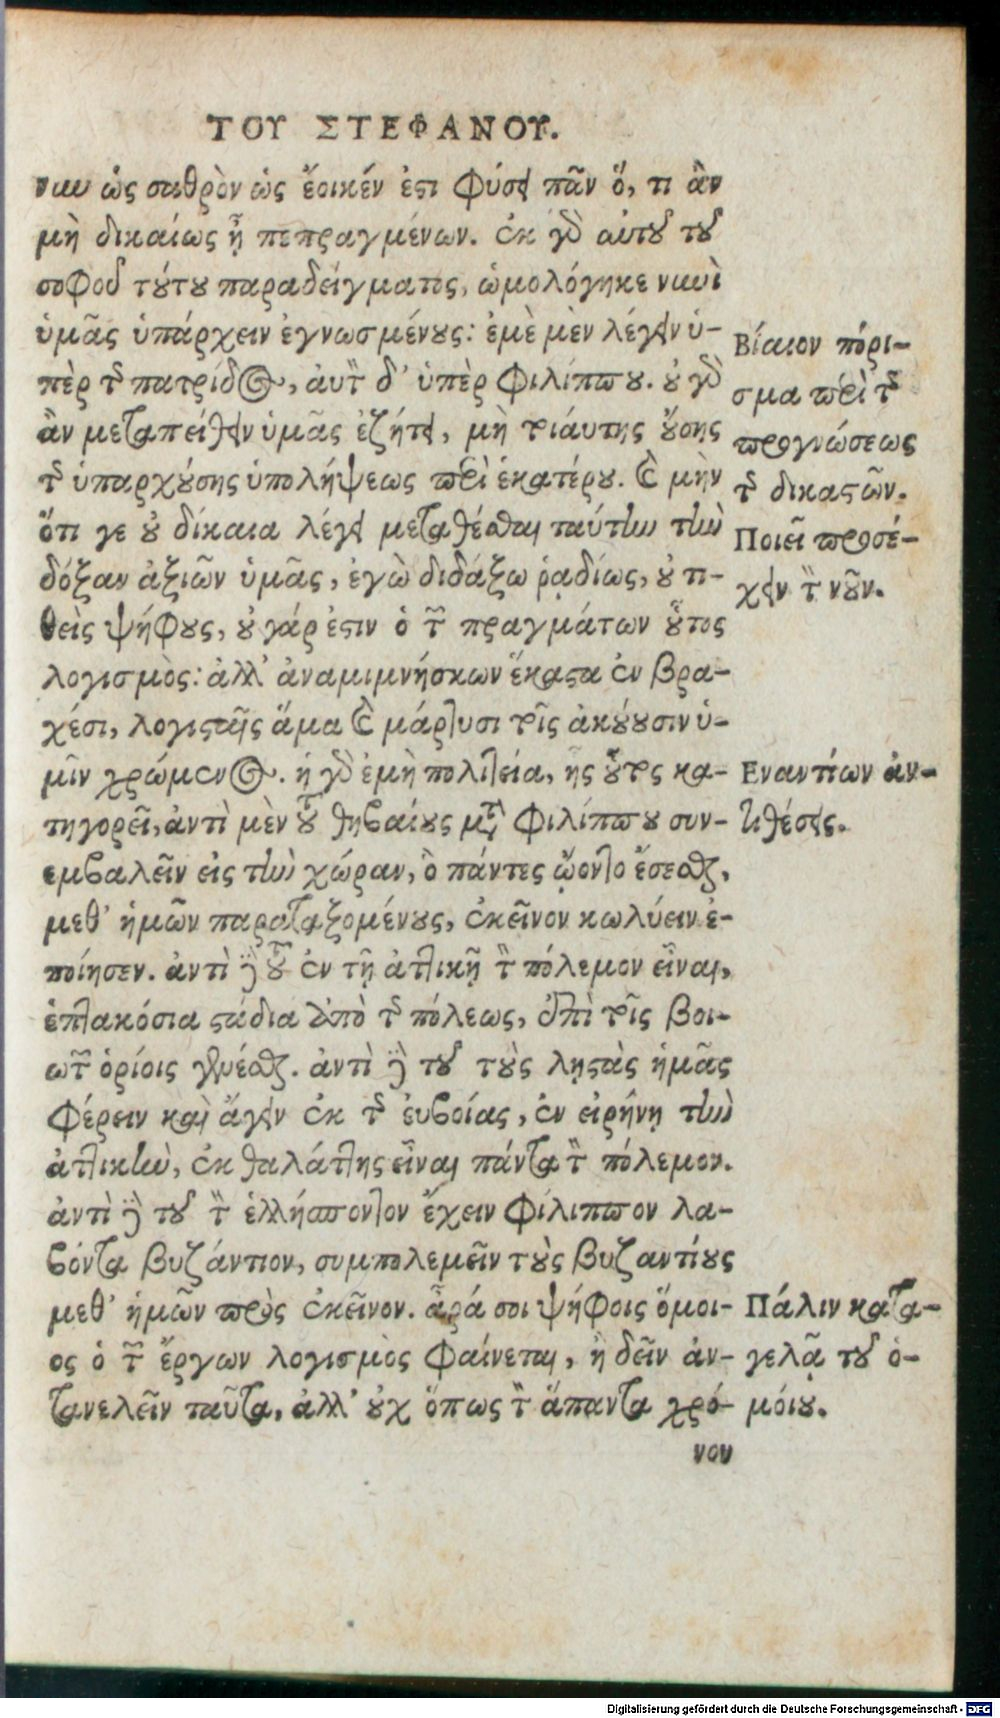 ΤΟΥ ΣΤΕΦΑΝΟΥ.
νυν ὡς σαθρὸν ὡς ἔοικέν ἐστι φύσει πᾶν ὅ, τι ἂν
μὴ δικαίως ᾖ πεπραγμένων. ἐκ γὸ αὐτοῦ τοῦ
σοφοῦ τούτου παραδείγματος, ὡμολόγηκε νυνὶ
ὑμᾶς ὑπάρχειν ἐγνωσμένους: ἐμὲ μὲν λέγειν ὑ-
πὲρ τῆς πατρίδος, αὐτὸν δ’ ὑπὲρ Φιλίππου. οὐ γὸ
ἂν μεταπείθειν ὑμᾶς ἐζήτει, μὴ τοιάυτης ὄυσης
τῆς ὑπαρχούσης ὑπολήψεως περὶ ἑκατέρου. καὶ μὴν
ὅτι γε οὐ δίκαια λέγει μεταθέσθαι ταύτην τὴν
δόξαν ἀξιῶν ὑμᾶς, ἐγὼ διδάξω ῥᾳδίως, οὐ τι-
θεὶς ψήφους, οὐ γάρ ἐστιν ὁ τῶν πραγμάτων οὗτος
λογισμὸς: ἀλλ’ ἀναμιμνήσκων ἕκαστα ἐν βρα-
χέσι, λογισταῖς ἅμα καὶ μάρτυσι τοῖς ἀκούουσιν ὑ-
μῖν χρώμενος. ἡ γὸ ἐμὴ πολιτεία, ἧς οὗτος κα-
τηγορεῖ, ἀντὶ μὲν τοῦ θηβαίους μετὰ Φιλίππου συν-
εμβαλεῖν εἰς τὴν χώραν, ὃ πάντες ᾤοντο ἔσεσθαι,
μεθ’ ἡμῶν παραταξομένους, ἐκεῖνον κωλύειν ἐ-
ποίησεν. ἀντὶ δὲ τοῦ ἐν τῇ ἀττικῇ τὸν πόλεμον εἶναι,
ἑπτακόσια στάδια ἀπὸ τῆς πόλεως, ἐπὶ τοῖς βοι-
ωτῶν ὁρίοις γενέσθαι. ἀντὶ δὲ τοῦ τοὺς λῃστὰς ἡμᾶς
φέρειν καὶ ἄγειν ἐκ τῆς ἐυβοίας, ἐν εἰρήνῃ τὴν
ἀττικὴν, ἐκ θαλάττης εἶναι πάντα τὸν πόλεμον.
ἀντὶ δὲ τοῦ τὸν ἑλλήσποντον ἔχειν Φίλιππον λα-
βόντα βυζάντιον, συμπολεμεῖν τοὺς βυζαντίους
μεθ’ ἡμῶν πρὸς ἐκεῖνον. ἆρά σοι ψήφοις ὅμοι-
ος ὁ τῶν ἔργων λογισμὸς φαίνεται, ἢ δεῖν ἀν-
τανελεῖν ταῦτα, ἀλλ’ οὐχ ὅπως τὸν ἅπαντα χρό-
νον
Βίαιον πόρι-
σμα περὶ τῆς
προγνώσεως
τῆς δικαστῶν.
Ποιεῖ προσέ-
χειν τὸν νοῦν.
Εναντίων ἀν-
τιθέσεις.
Πάλιν κατα-
γελᾷ τοῦ ὁ-
μόιου.
Digitalisierung gefördert durch die Deutsche Forschungsgemeinschaft - DFG